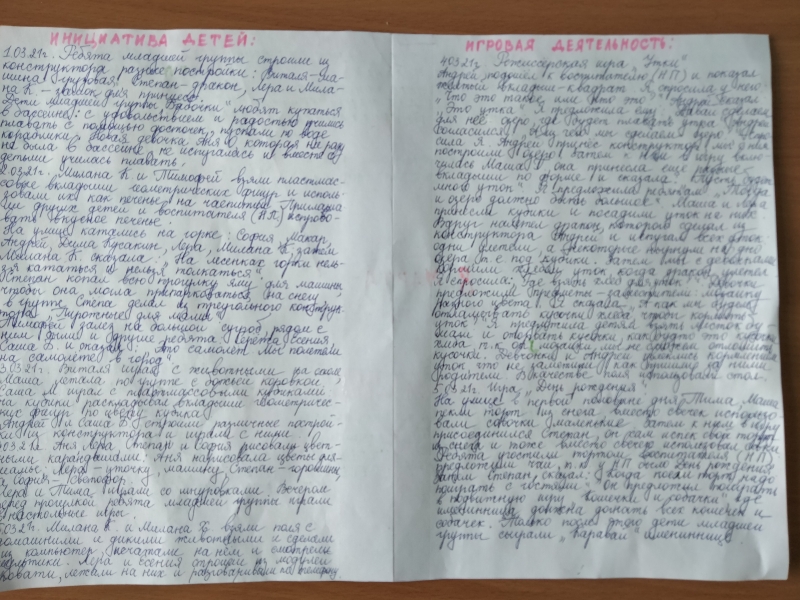 ИНИЦИАТИВА ДЕТЕЙ:
1.03.21г. Ребята младшей группы строили из
конструктора разные постройки: Виталя-ма-
шина грузовая, Степан-дракон, Лера и Мила-
на К – замок для принцесс.
Дети младшей группы "Бабочки" любят купаться
в бассейне: с удовольствием и радостью учились
плавать с помощью досточек, пускали по воде
кораблики. Новая девочка Аня О, которая ни разу
не была в бассейне, не испугалась и вместе с
детьми училась плавать.
2.03.21г. Милана К и Тимофей взяли пластмас-
совые вкладыши геометрических фигур и исполь-
зовали их как печенье на чаепитии. Пригла-
сили других детей и воспитателя (НП) испробо-
вать вкусное печенье.
На улице катались на горке: София, Макар,
Андрей, Дима Кусакин, Лера, Милана К, затем
Милана К. сказала: "На лесенках горки нель-
зя кататься и нельзя толкаться".
Степан копал всю прогулку яму для машины
чтобы она могла припарковаться. На снегу
в группе Степа делал из треугольного конструк-
тора "Пирожные для мамы".
Тимофей залез на большой сугроб, рядом с
ним Дима и другие ребята Серёжа, Есения,
Саша Б. и сказал: "Это самолёт. Мы полетим
на самолёте в город".
3.03.21г. Виталя играл с животными
Маша летала по группе с божьей коровкой.
Саша М. играл с пластмассовыми кубиками
на кубики раскладывал вкладыши геометричес-
ких фигур по цвету кубика.
Андрей и Саша Б. строили различные построй-
ки из конструктора и играли с ними.
Аня, Лера, Степан и София рисовали цвет-
ными карандашами: Аня нарисовала цветы для
мамы, Лера – уточку, машину, Степан –
а София – светофор.
Лера и Тима играли со шнуровками. Вечером
перед прогулкой ребята младшей группы играли
в настольные игры.
5.03.21г. Милана К. и Милана Б взяли поля с
домашними и дикими животными и сделали
из них компьютер, печатали на нём и смотрели
мультики. Лера и Есения строили из модулей
кровати, лежали на них и разговаривали по телефону.
ИГРОВАЯ ДЕЯТЕЛЬНОСТЬ:
4.03.21г. Режиссерская игра "Утки"
Андрей подошёл к воспитателю (НП) и показал
жёлтый вкладыш-квадрат. Я спросила у него:
"Что это такое, или кто это?". Андрей сказал:
"Это утка". Я предложила ему: "Давай сделаем
для неё озеро, где будет плавать утка". Андрей
согласился. "Из чего мы сделаем озеро?" – спро-
сила я. Андрей принёс конструктор, мы с ним
построили озеро. Затем к нам в игру вклю-
чилась Маша. Она принесла ещё разные
вкладыши по форме и сказала: "Пусть будет
много уток". Я предложила ребятам: "Тогда
и озеро должно быть больше". Маша и Лера
принесли кубики и посадили уток на них.
Вдруг налетел дракон, которого сделал из
конструктора Андрей и испугал всех уток:
одни улетели, а некоторые нырнули на дно
озера (т.е под кубики). Затем мы с девочками
кормили хлебом уток, когда дракон улетел.
Я спросила: "Где взять хлеб для уток?". Девочки
предложили предметы-заместители: мозаику
разного цвета. Я сказала: "А как мы будем
откалывать кусочки хлеба, чтобы кормить
уток?". Я предложила детям взять листок бу-
маги и отрывать кусочки, как будто это кусочки
хлеба т.к от мозаики мы не сможем отломить
кусочки. Девчонки и Андрей увлеклись кормлением
уток, что не заметили, как пришли за ними
родители. В качестве поля использовали стол.
5.03.21г. Игра "День рождения".
На улице в первой половине дня Тима, Маша
пекли торт из снега, вместо свечек использо-
вали палочки маленькие. Затем к ним в игру
присоединился Степан, он сам испек свой торт
из снега и тоже вместо свечек использовал палки.
Ребята угостили тортом воспитателя (НП),
предложили чай, т.к у НП было День рождения.
Затем Степан сказал: "Когда поели торт, надо
поиграть с гостями", он предложил поиграть
в подвижную игру "Кошечки и собачки", где
именинница должна догнать всех кошечек и
собачек. Только после этого дети младшей
группы сыграли "Каравай" имениннице.